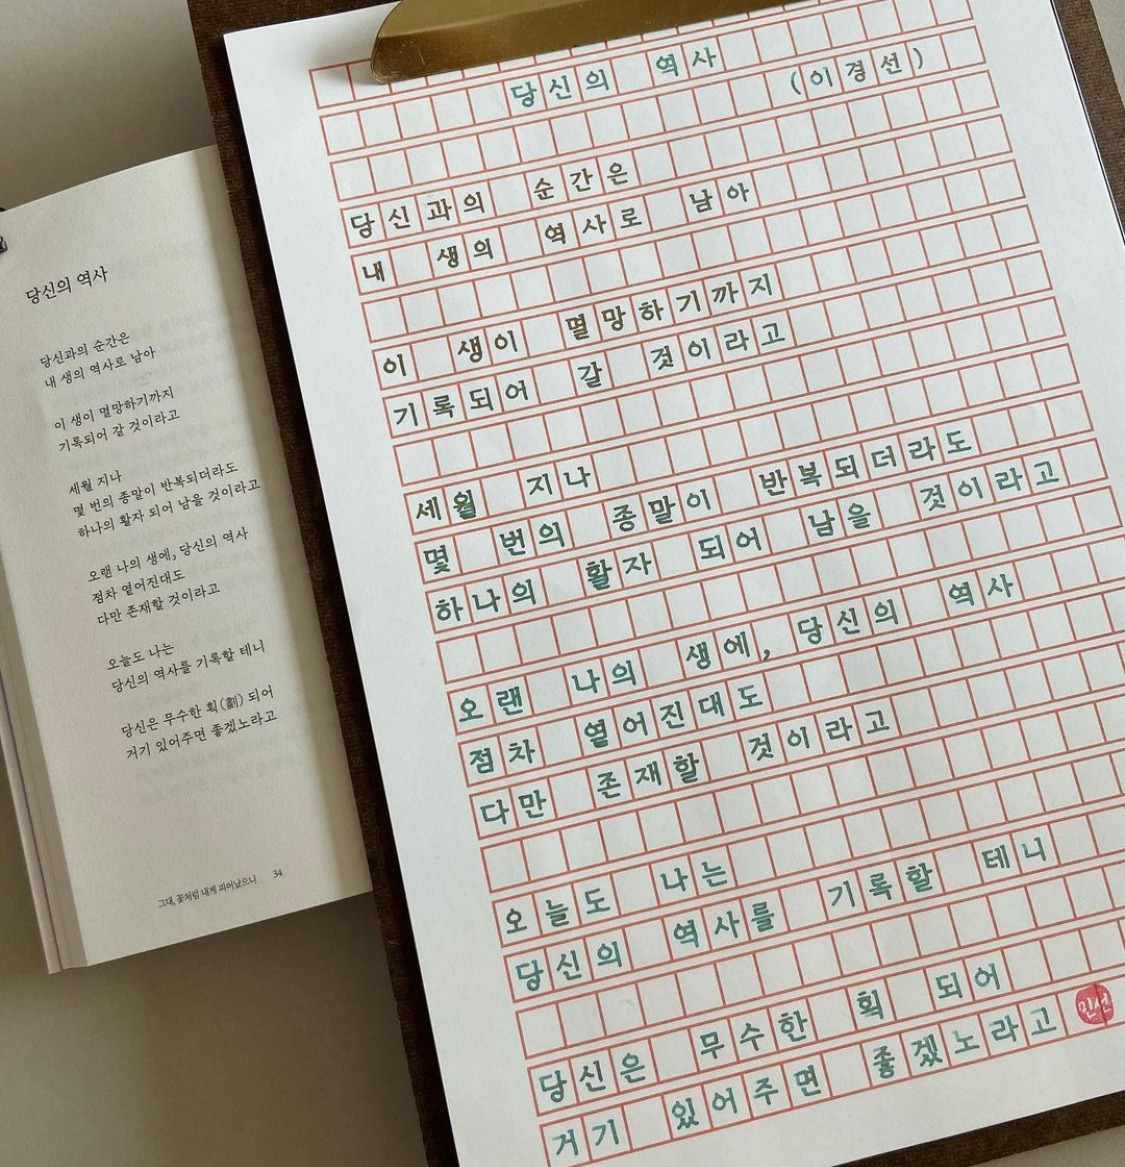 당신의 역사
당신과의 순간은
내 생의 역사로 남아
이 생이 멸망하기까지
기록되어 갈 것이라고
세월 지나
몇 번의 종말이 반복되더라도
하나의 활자 되어 남을 것이라고
오랜 나의 생에, 당신의 역사
점차 옅어진대도
다만 존재할 것이라고
오늘도 나는
당신의 역사를 기록할 테니
당신은 무수한 획(劃) 되어
거기 있어주면 좋겠노라고
그대, 꽃처럼 내게 피어났으니 34
당신의 역사
(이경선)
당신과의 순간은
내 생의 역사로 남아
이 생이 멸망하기까지
기록되어 갈 것이라고
세월 지나
몇 번의 종말이 반복되더라도
하나의 활자 되어 남을 것이라고
오랜 나의 생에, 당신의 역사
점차 옅어진대도
다만 존재할 것이라고
오늘도 나는
당신의 역사를 기록할 테니
당신은 무수한 획 되어
거기 있어주면 좋겠노라고
민선